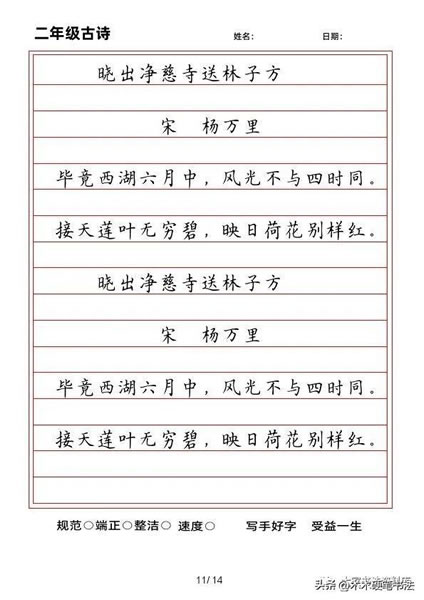 二年级古诗 姓名: 日期:
晓出净慈寺送林子方
宋 杨万里
毕竟西湖六月中，风光不与四时同。
接天莲叶无穷碧，映日荷花别样红。
晓出净慈寺送林子方
宋 杨万里
毕竟西湖六月中，风光不与四时同。
接天莲叶无穷碧，映日荷花别样红。
规范○端正○整洁○ 速度○ 写手好字 受益一生
11/14
头条@木木硬笔书法